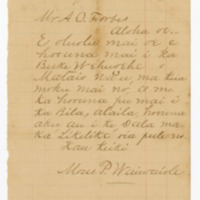 Mr A. O. Forbes
Aloha oe.
E oluolu mai oe e
hoouna mai i ka
Buke Wehiwehi o
Mataio Na'u, ma kua
moku mai no, a na
ka hoouna pu mai i
ka Bila, alaila, hoouna
aku au i ke Dala ma
ka Likelike via pule no.
Kau Keiki
Mose P. Waiwaiole